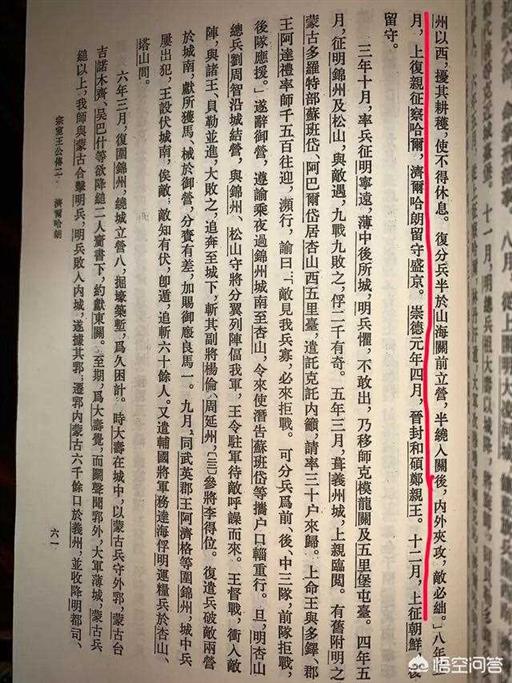 州以西，擾其耕穫，使不得休息。復分兵半於山海關前立營，半繞入關後，內外夾攻，敵必絀。」八年
月，上復親征察哈爾，濟爾哈朗留守盛京。崇德元年四月，晉封和碩鄭親王。十二月，上征朝鮮，復
留守。
三年十月，率兵征明寧遠，薄中後所城，明兵懼，不敢出，乃移師克模龍關及五里堡屯臺。四年五
月，征明錦州及松山，與敵遇，九戰九敗之，俘二千有奇。五年三月，葺義州城，上親臨閱。有舊附明之
蒙古多羅特部蘇班岱、阿巴爾岱居杏山西五里臺，遣託克託內籲，請率三十户來歸。上命王與多鐸、郡
王阿達禮率師千五百往迎，瀕行，諭曰：「敵見我兵寡，必來拒戰。可分兵爲前、後、中三隊，前隊拒戰，
後隊應援。」遂辭御營，遵諭乘夜過錦州城南至杏山，令來使潛告蘇班岱等攜户口輜重行。旦，明杏山
總兵劉周智沿城結營，與錦州、松山守將分翼列陣偪我軍，王令駐軍待敵呼譟而來。王督戰，衝入敵
陣，與諸王、貝勒並進，大敗之，追奔至城下，斬其副將楊倫、周延州，〔三〕參將李得位。復遣兵破敵兩營
於城南，獻所獲馬、械於御營，分賚有差，加賜御廄良馬一。九月，同武英郡王阿濟格等圍錦州，城中兵
屢出犯，王設伏城南，俟敵；敵知有伏，卽遁，追斬六十餘人。又遣輔國將軍務達海俘明運糧兵於杏山、
塔山間。
六年三月，復圍錦州，繞城立營八，掘壕築塹，爲久困計。時大壽在城中，以蒙古兵守外郛，蒙古台
吉諾木齊、吳巴什等欲降，縋二人齎書下，約獻東關。至期，爲大壽覺，而關聲聞郛外，大軍薄城，蒙古兵
縋以上，我師與蒙古合擊明兵，明兵敗入内城，遂據其郛，遷郛内蒙古六千餘口於義州，並收降明都司、
宗室王公傳二　濟爾哈朗
六一
悟空问答